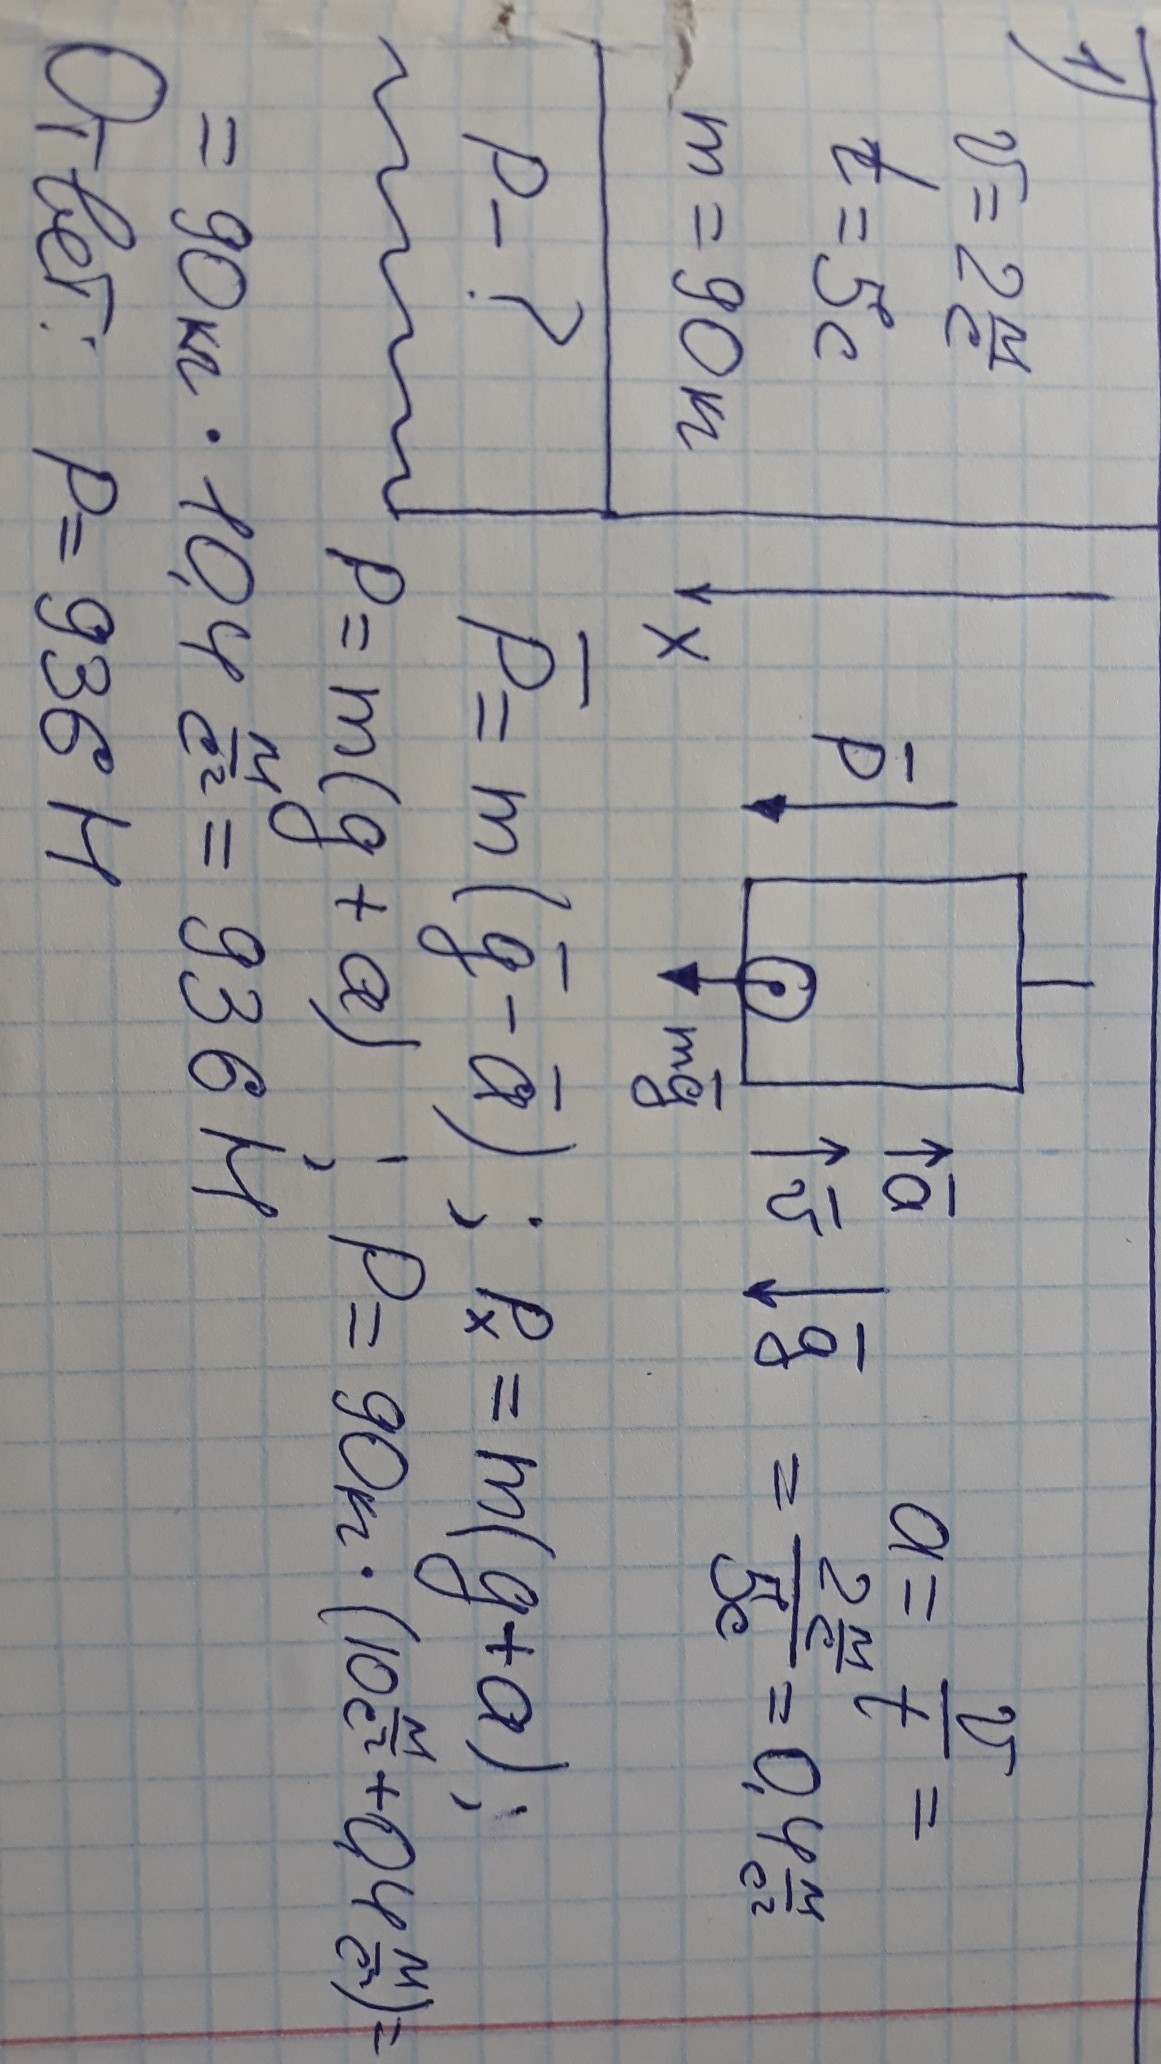 1)
v = 2 м/с
t = 5с
m = 90 кг
P - ?
x
P̅
mg̅
a̅
v̅
g̅
a = v/t =
= 2 м/с / 5с = 0,4 м/с²
P̅ = m(g̅ - a̅); Pₓ = m(g + a);
P = m(g + a); P = 90кг · (10 м/с² + 0,4 м/с²) =
= 90кг · 10,4 м/с² = 936 Н
Ответ: P = 936 Н